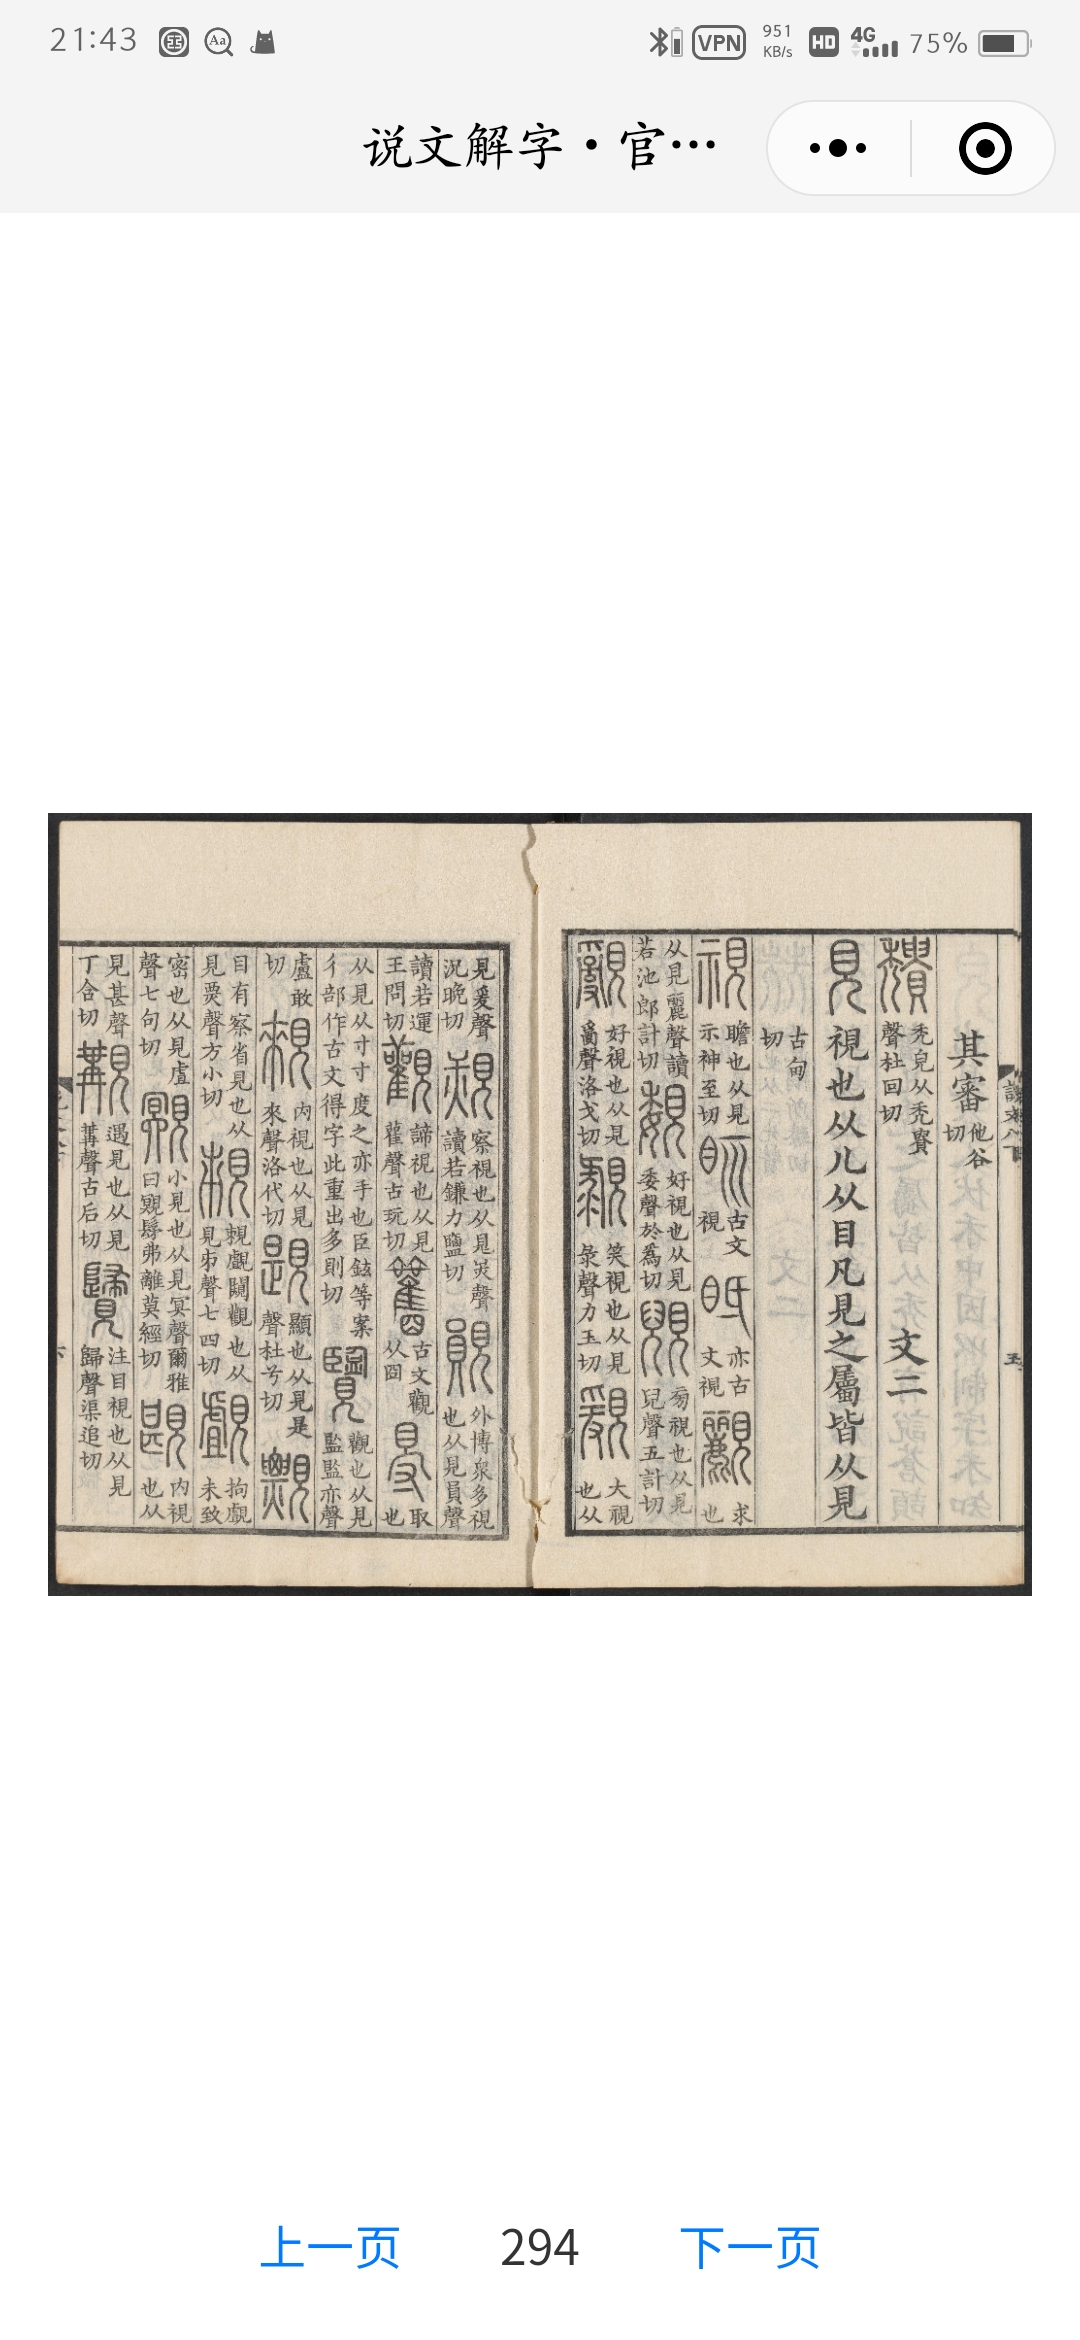 21:43
VPN 951 KB/s HD 4G 75%
说文解字·官…
其審他谷切
穨禿皃从禿貴聲杜回切
文二
見視也从儿从目凡見之屬皆从見
古甸切
視瞻也从見示神至切
古文視
亦古文視
覼求也
从見麗聲讀若池郎計切
覣好視也从見委聲於為切
覞㫄視也从見兒聲五計切
好視也从見𤔔聲洛戈切
覶笑視也从見彔聲力玉切
大視也从
見爰聲況晚切
察視也从見㶣聲讀若鎌力鹽切
外博眾多視也从見員聲
讀若運王問切
觀諦視也从見雚聲古玩切
古文觀从囧
取也
从見从寸寸度之亦手也臣鉉等案彳部作古文得字此重出多則切
覽觀也从見監監亦聲
盧敢切
內視也从見來聲洛代切
顯也从見是聲杜兮切
目有察省見也从見票聲方小切
覰闚觀也从見𠂔聲七四切
拘覰未致
密也从見虘聲七句切
小見也从見冥聲爾雅曰覭髳弗離莫經切
內視也从
見甚聲丁含切
覯遇見也从見冓聲古后切
注目視也从見歸聲渠追切
上一页 294 下一页